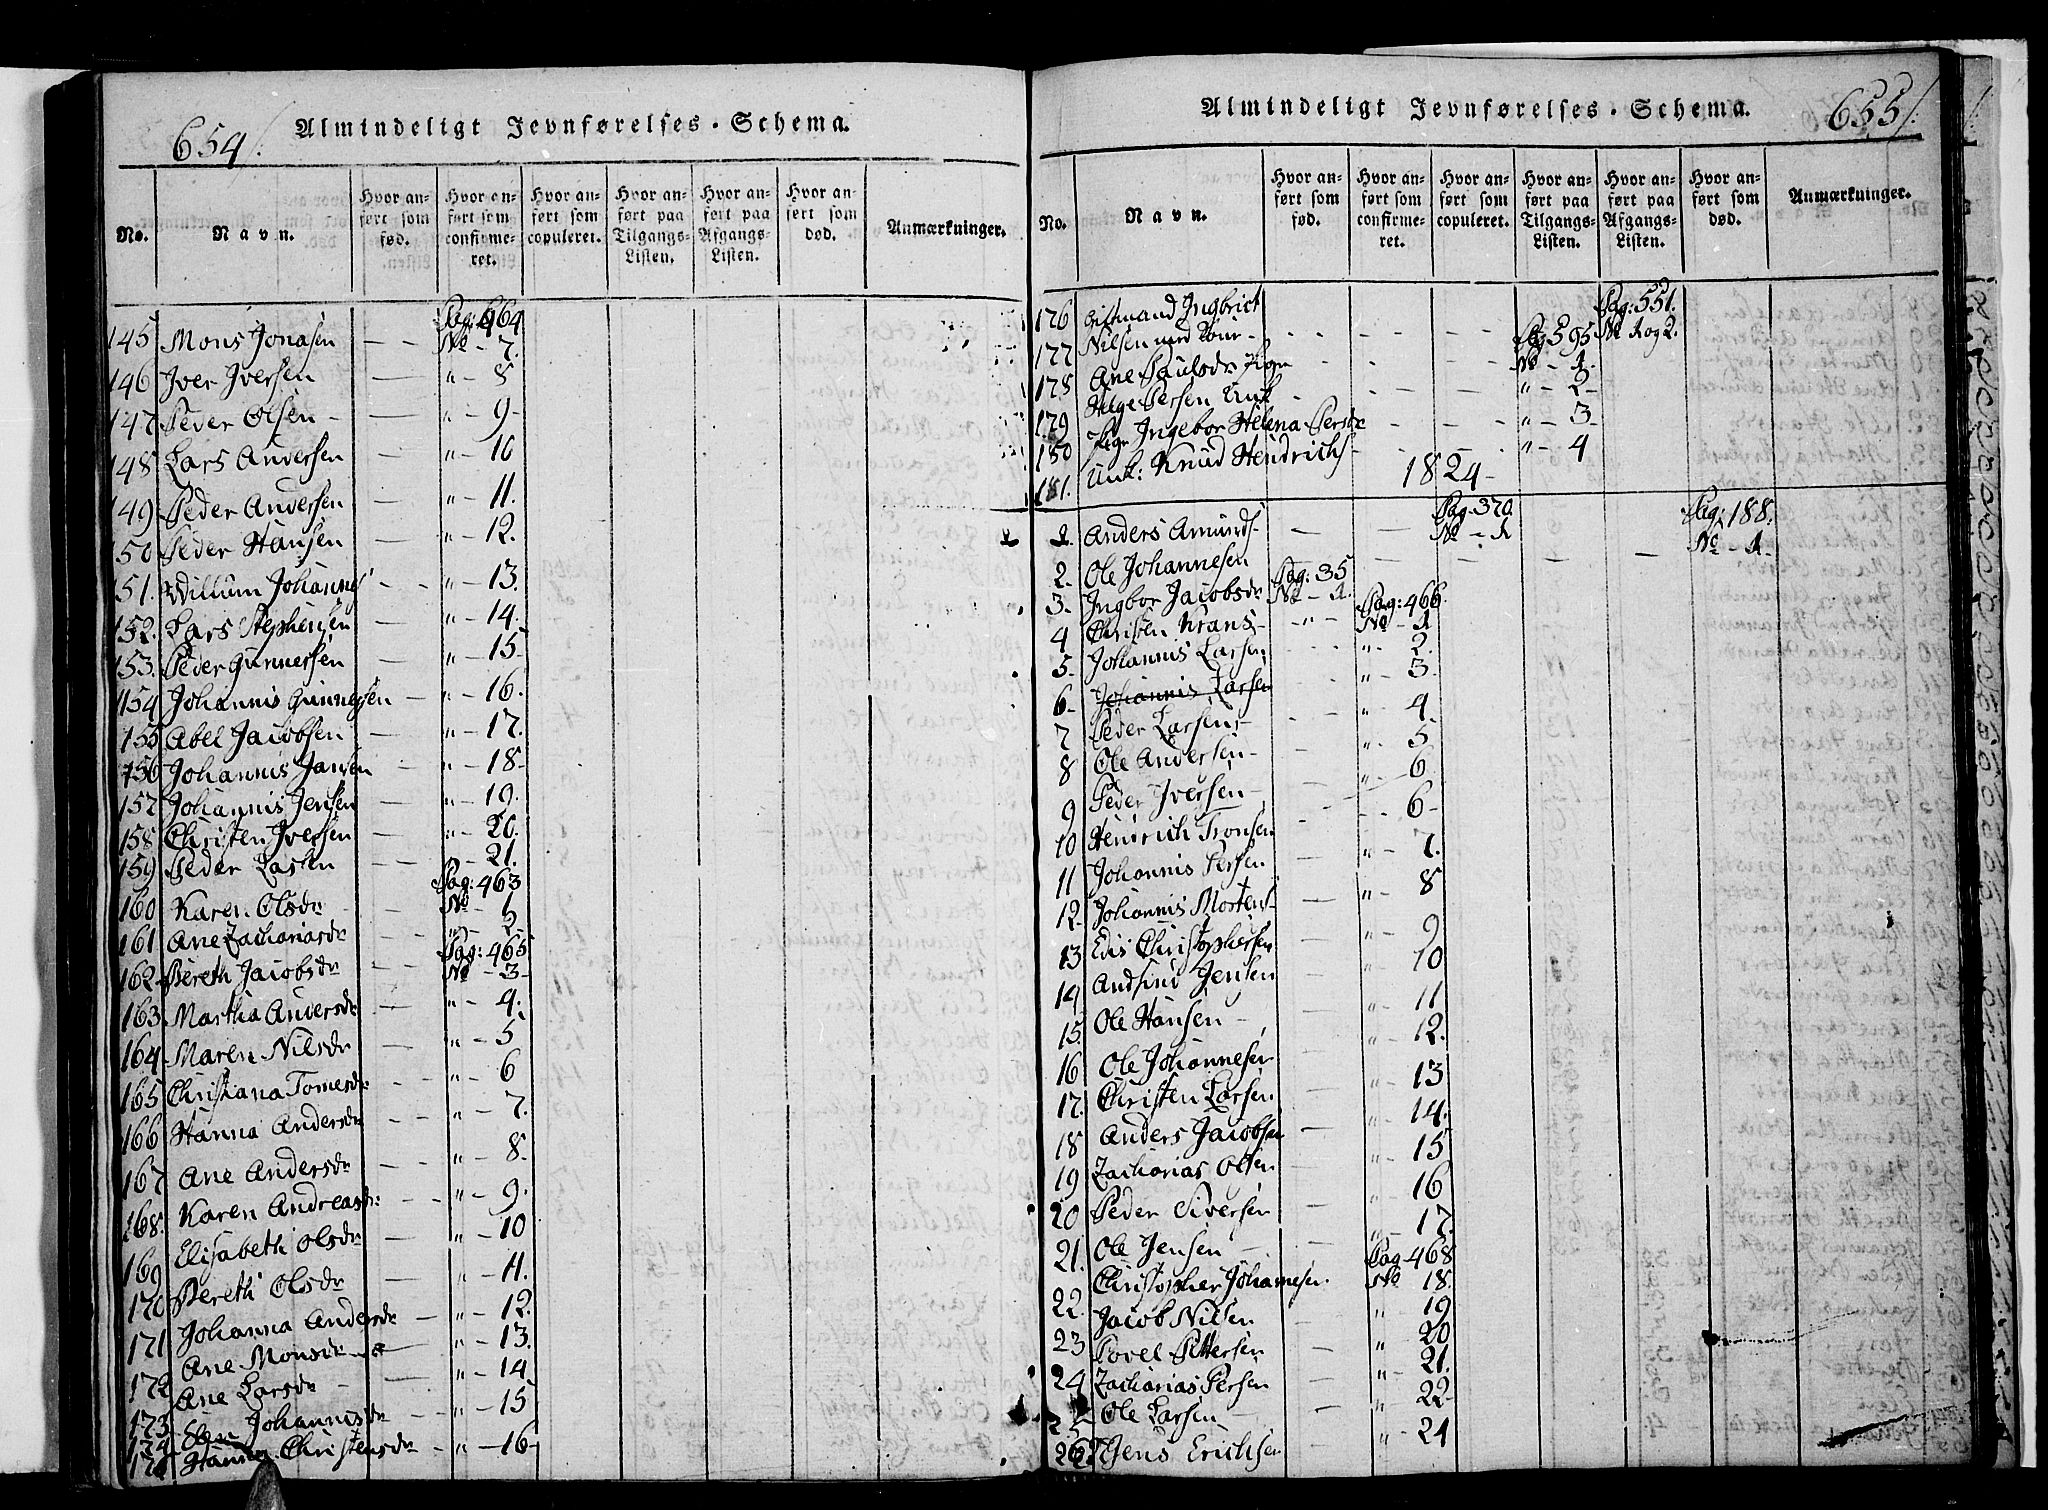 654/.
Almindeligt Jevnførelses-Schema.
No.
Navn.
Hvor anført som fød.
Hvor anført som confirmeret.
Hvor anført som copuleret.
Hvor anført paa Tilgangs-Listen.
Hvor anført paa Afgangs-Listen.
Hvor anført som død.
Anmærkninger.
Pag: 464
145 Mons Jonasen — — No - 7.
146 Iver Iversen — " - 8
147 Peder Olsen — " - 9-
148 Lars Andersen — " - 10
149 Peder Andersen — " - 11.
150 Peder Hansen — " - 12.
151. Willum Johannes — " - 13.
152. Lars Stephensen — " - 14.
153. Peder Gunnersen — " - 15-
154 Johannis Gunnersen — " - 16.
155 Abel Jacobsen — " - 17.
156 Johannis Jansen — " - 18-
157 Johannis Jensen — " - 19.
158 Christen Iversen — " - 20.
159 Peder Larsen — " - 21.
Pag: 463
160 Karen Olsdr — No - 1
161 Ane Zachariasdr — " - 2-
Pag: 465
162 Bereth Jacobsdr — No - 3-
163. Martha Andersdr — " - 4.
164 Maren Nilsdr — " - 5
165 Christiana Tomesdr — " - 6
166 Hanna Andersdr — " - 7.
167 Ane Andersdr — " - 8.
168. Karen Andreasdr — " - 9.
169 Elisabeth Olsdr — " - 10
170 Bereth Olsdr — " - 11.
171 Johanna Andersdr — " - 12.
172 Ane Monsdr — " - 13.
173 Ane Larsdr — " - 14
174 Johannisdr — " - 15
175 Hanna Christensdr — " - 16-
Almindeligt Jevnførelses-Schema.
655/.
No.
Navn.
Hvor anført som fød.
Hvor anført som confirmeret.
Hvor anført som copuleret.
Hvor anført paa Tilgangs-Listen.
Hvor anført paa Afgangs-Listen.
Hvor anført som død.
Anmærkninger.
Pag: 551.
176 Ingbrict
177 Nilsen med Kone - Pag 595 No 1 og 2.
178 Ane Paulsdr No - 1.
179 Helge Persen Unk " - 2-
180 Pige Ingebor Helena Persdr " - 3
181. Unk: Knud Hendrichs " - 4
1824-
Pag. 370 Pag: 188.
1. Anders Amunds — No - 1
2. Ole Johannesen — No - 1.
Pag: 35
3. Ingbor Jacobsdr No - 1.
Pag: 466.
4 Christen Krans - No - 1
5. Johannis Larsen " - 2.
6 Johannis Larsen " - 3.
7 Peder Larsen - " - 4
8 Ole Andersen - " - 5
9 Peder Iversen - " - 6
10 Heinrich Tronsen - 6-
11 Johannis Persen " - 7.
12. Johannis Mortens " - 8
13 Edis Christophersen " - 9
14 Jensen " - 10
15. Ole Hansen - " - 11
16 Ole Johannesen " - 12.
17. Christen Larsen " - 13
18 Anders Jacobsen " - 14.
19 Zacharias Olsen " - 15
20 Peder Siversen " - 16
21. Ole Jensen — " - 17.
Pag 468
22. Christopher Johannesen. No 18.
23 Jacob Nilsen " 19
24 Povel Pettersen " 20
Zacharias Persen " - 21.
25 Ole Larsen - " - 22-
26 Jens Erichsen " - 24